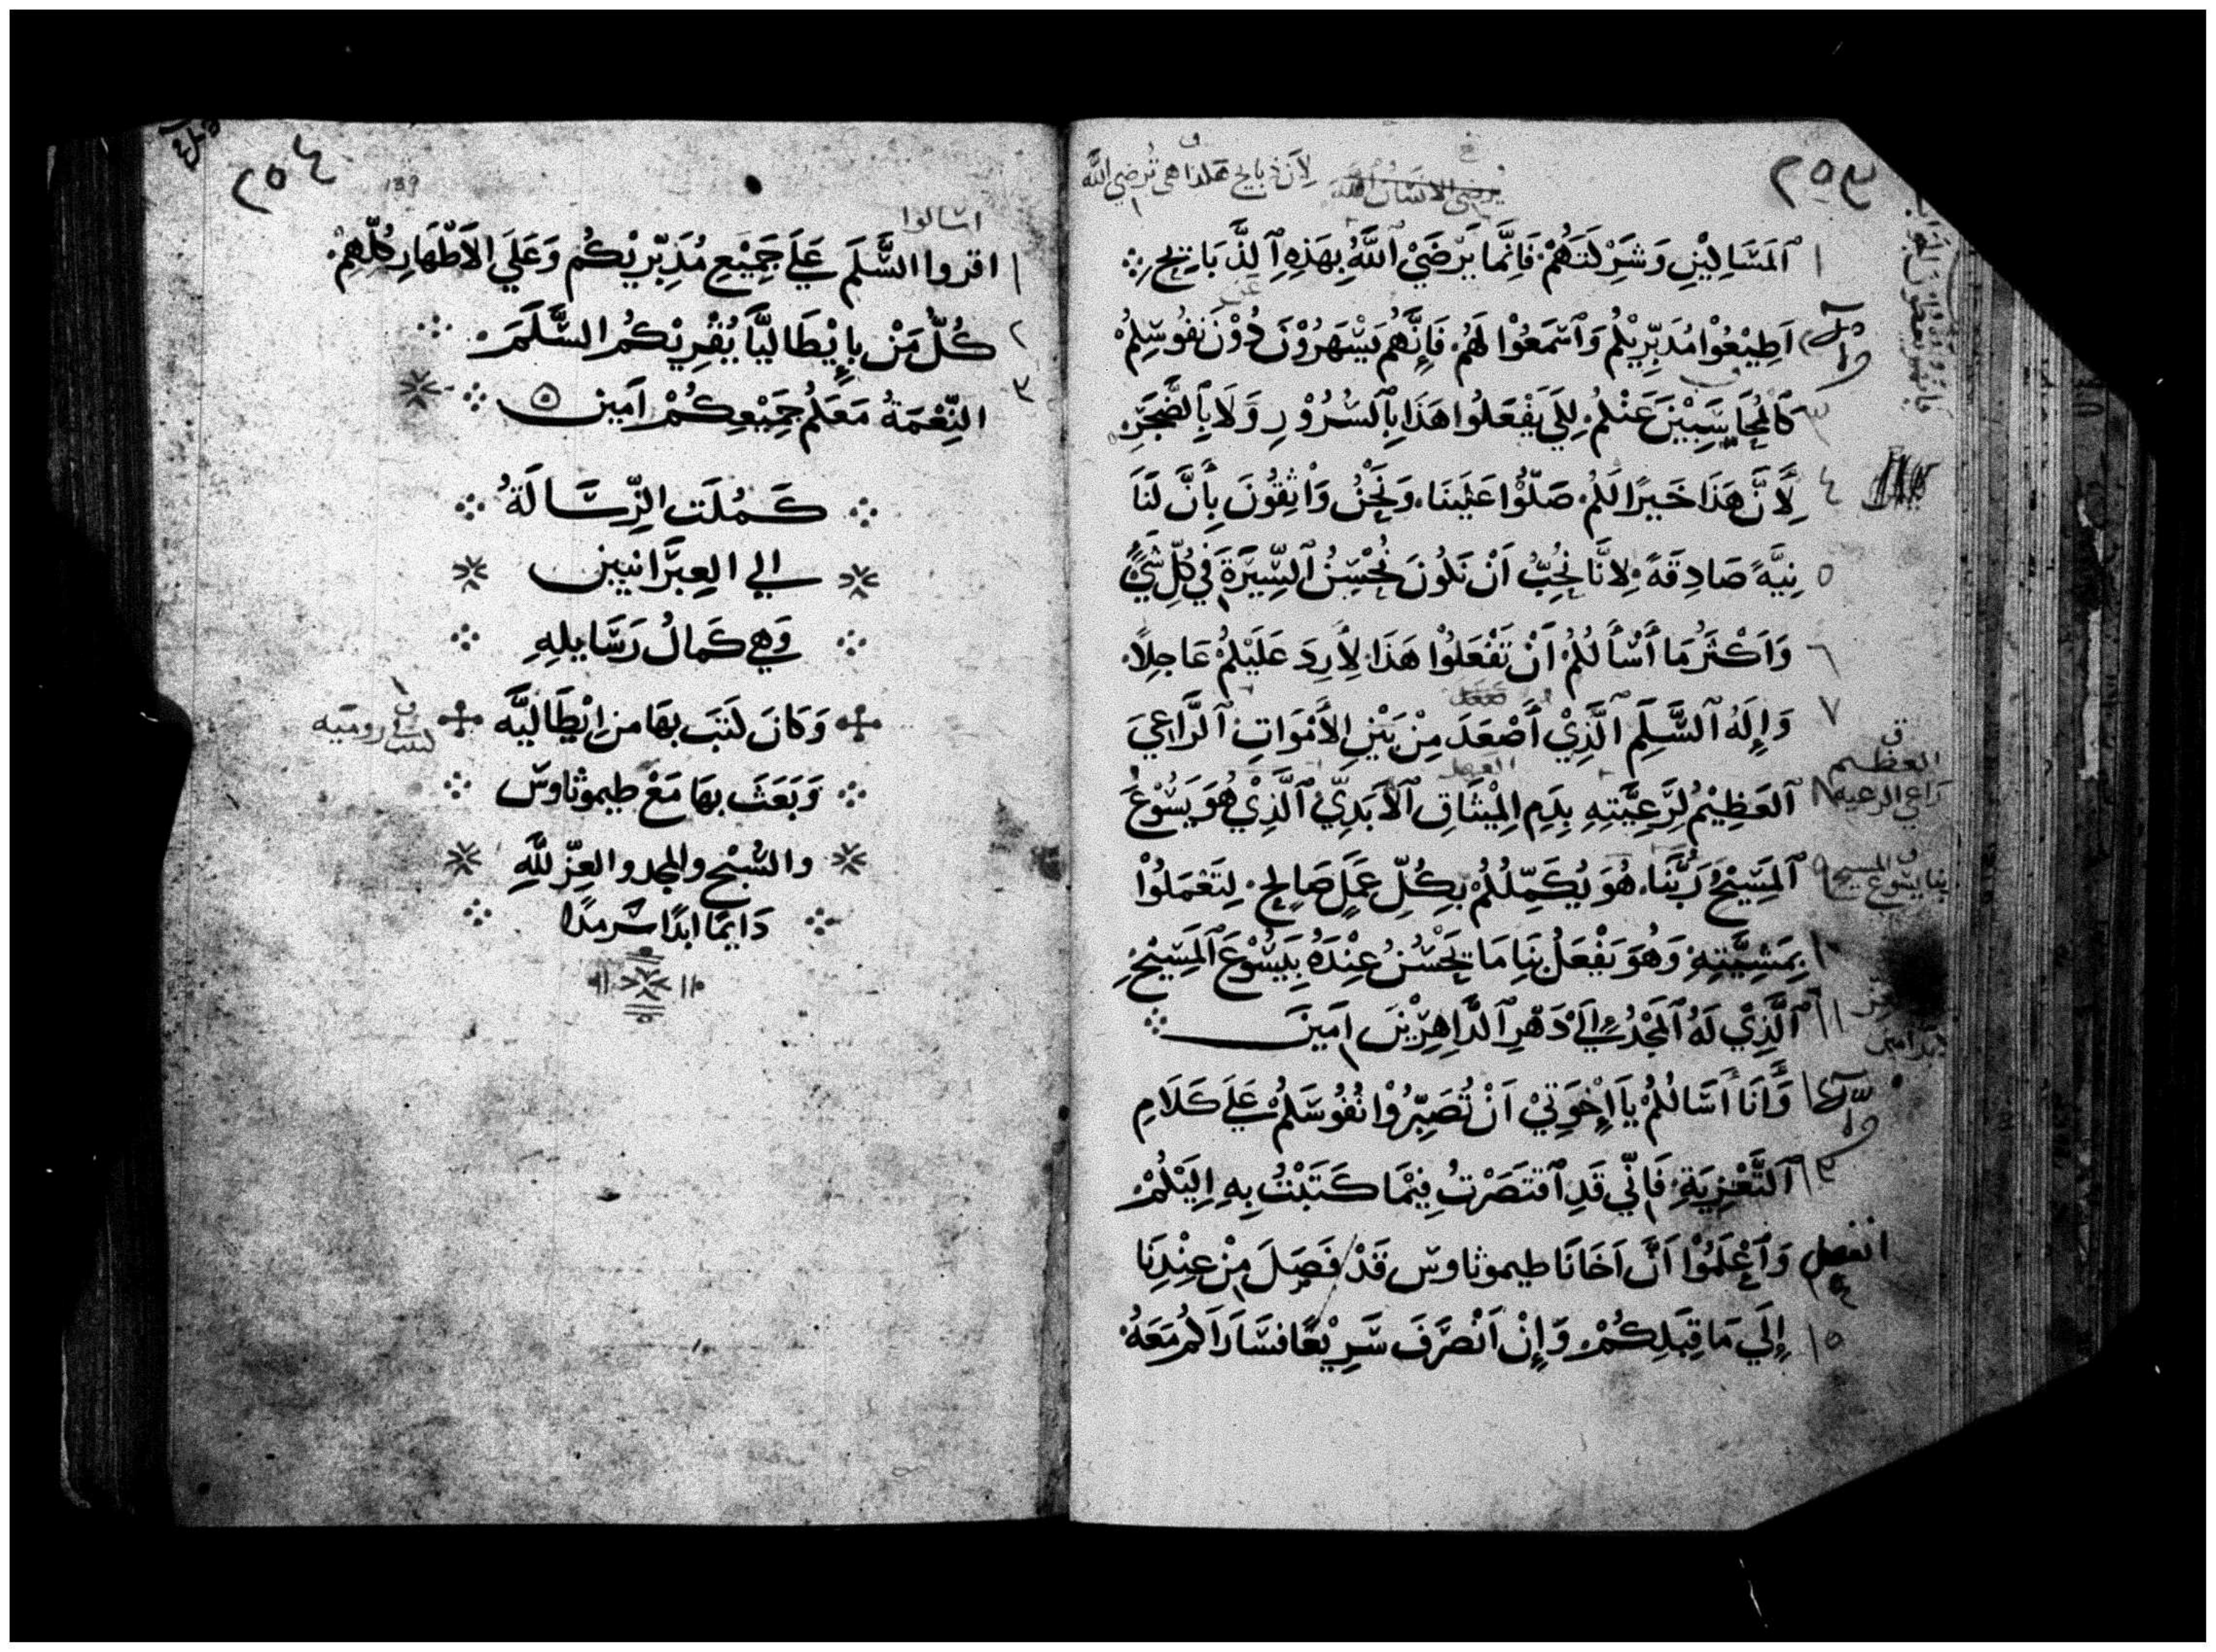 ٢٥٣
لِأَن ذبايح هكذا هي تُرضي الله
١ ٱلمَسَاكِيْنِ وَشَرِكَتَهُمْ فَإِنَّمَا يَرْضَيْ ٱللَّهُ بِهَذِهِ ٱلذَّبَايِحِ
اَطِيْعُوْا مُدَبِّرِيْكُمْ وَٱسْمَعُوْا لَهُمْ فَإِنَّهُمْ يَسْهَرُوْنَ دُوْنَ نُفُوسِكُمْ
٣ كَالمُحَاسَبِيْنَ عَنْكُمْ لِكَي يَفْعَلُوا هَذَا بِٱلسُرُوْرِ وَلَا بِٱلضَّجَرِ
٤ لِأَنَّ هَذَا خَيرًا لَكُمْ صَلُّوْا عَلَيْنَا وَنَحْنُ وَاثِقُونَ بِأَنَّ لَنَا
٥ نِيَّهً صَادِقَهً لِانَّا نُحِبُّ اَنْ نَكُونَ نُحْسِنُ ٱلسِّيرَةَ فِي كُلِّ شَيْءٍ
٦ وَاَكْثَرُ مَا أَسْأَلُكُمْ أَنْ تَفْعَلُوْا هَذَا لِأَرِدَ عَلَيْكُمْ عَاجِلاً
٧ وَإِلَهُ ٱلسَّلَمِ ٱلَّذِيْ أَصْعَدَ مِنْ بَيْنِ الأَمْوَاتِ ٱلرَّاعِيَ
العظيم
راعي الرعيه
٨ ٱلعَظِيْمُ لِرَعِيَّتِهِ بِدَمِ المِيْثَاقِ ٱلأَبَدِيِّ ٱلَّذِيْ هُوَ يَسُوْعُ
٩ ٱلمَسِيْحُ رَبُّنَا هُوَ يُكَمِّلُكُمْ بِكُلِّ عَمَلٍ صَالِحٍ لِتَعْمَلُوْا
١٠ بِمَشِيَّتِهِ وَهُوَ يَفْعَلُ بِنَا مَا يَحْسُنُ عِنْدَهُ بِيَسُوْعَ ٱلمَسِيْحِ
١١ ٱلَّذِيْ لَهُ ٱلمَجْدُ إِلَيْ دَهْرِ ٱلدَّاهِرِيْنَ امِينَ
١٢ وَأَنَا أَسَالُكُمْ يَا إِخْوَتِيْ اَنْ تُصَبِّرُوْا نُفُوسَكُمْ عَلَي كَلَامِ
١٣ ٱلتَّعْزِيَةِ فَإِنِّي قَدِ ٱقتَصَرْتُ فِيْمَا كَتَبْتُ بِهِ اِلَيْكُمْ
انفصل
١٤ وَٱعْلَمُوْا اَنَّ اَخَانَا طيموثاوس قَدْ فَصَلَ مِنْ عِنْدِنَا
١٥ إِلَي مَا قِبَلِكُمْ وَإِنْ اَنْصَرَفَ سَرِيْعًا فسَارَاكُمْ مَعَهُ
٢٥٤
139
اسالوا
١ اقروا السَّلَمَ عَلَي جَمِيْعِ مُدَبِّرِيْكُم وَعَلَي الاَطْهَارِ كُلِّهِمْ
٢ كُلُّ مَنْ بِإِيْطَاليَّا يُقْرِيْكُمُ السَّلَمَ
٣ النِّعْمَةُ مَعَكُمْ جَمِيْعِكُمْ اَمين
كَمُلَت الرِّسَالَةُ
الي العِبرَانيين
وَهي كَمالُ رَسَايلِهِ
وَكَانَ كَتَبَ بهَا من اِيْطَاليَّه
كتب من رومية
وَبَعَثَ بهَا مَعْ طيموثاوس
والسُبْح والمجد والعِزّ للَّهِ
دَايمًا ابدًا سَرمدًا